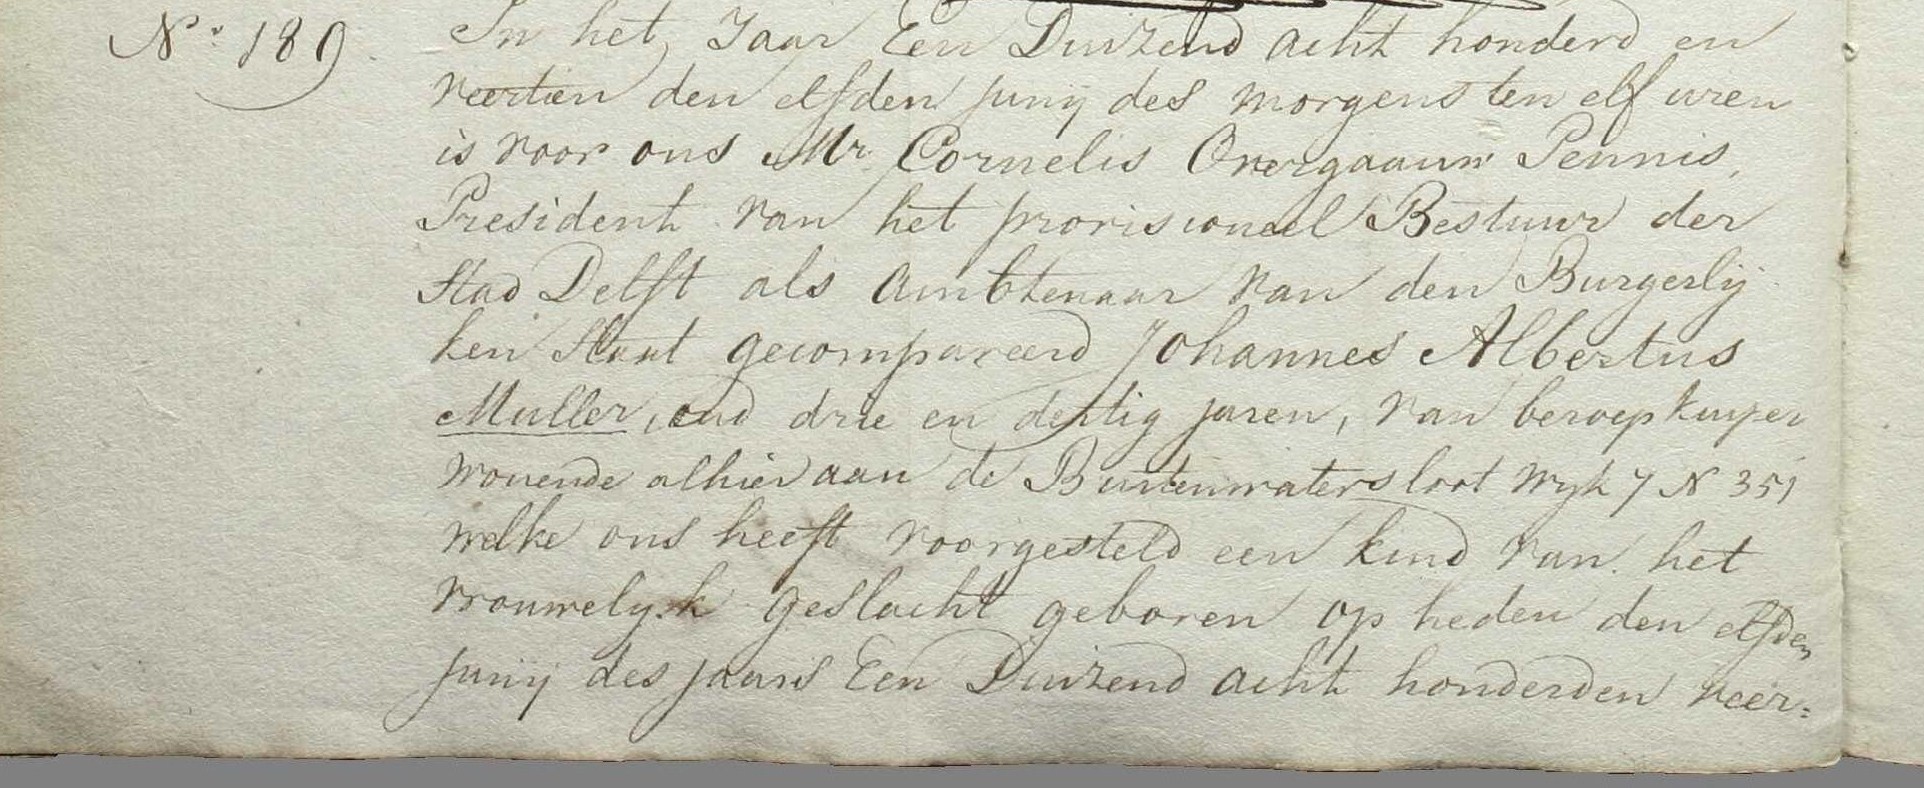 No. 189. In het Jaar Een Duizend acht honderd en
veertien den elfden junij des morgens ten elf uren
is voor ons Mr. Cornelis Overgaauw Pennis,
President van het provisioneel Bestuur der
Stad Delft als Ambtenaar van den Burgerlij
ken Staat gecompareerd Johannes Albertus
Muller, oud drie en dertig jaren, van beroep kuyper
wonende alhier aan de Buitenwatersloot Wyk 7 N 351
welke ons heeft voorgesteld een kind van het
vrouwelyk geslacht geboren op heden den elfden
junij des jaars Een Duizend acht honderd en veer=